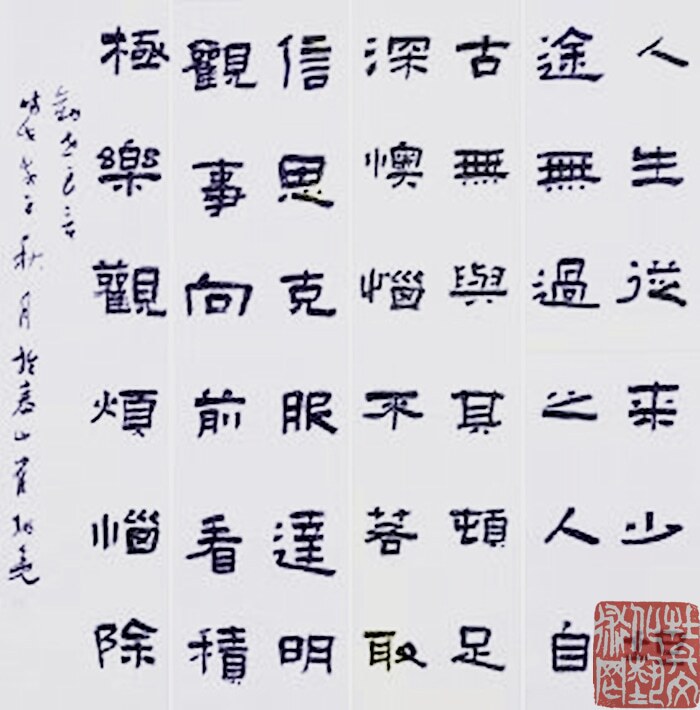 人生從来少
途無過之人自
古無與其頓足
深懊惱不若取
信思克服達明
觀事向前看積
極樂觀煩惱除
秋月於泰山